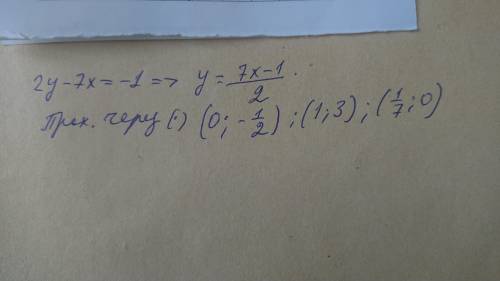 2y-7x=-1=> y=\frac{7x-1}{2}.
Прох. через (·) (0; -\frac{1}{2}); (1; 3); (\frac{1}{7}; 0)